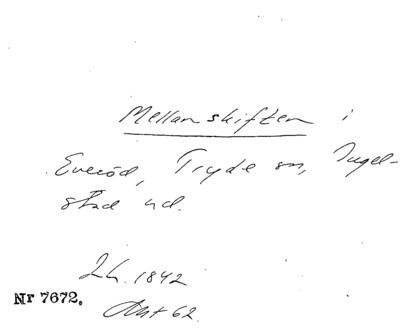 Mellanskiften i
Everöd, Tryde sn, Ingel-
stad hd.
Lh. 1842
Nr 7672.
Akt 62.